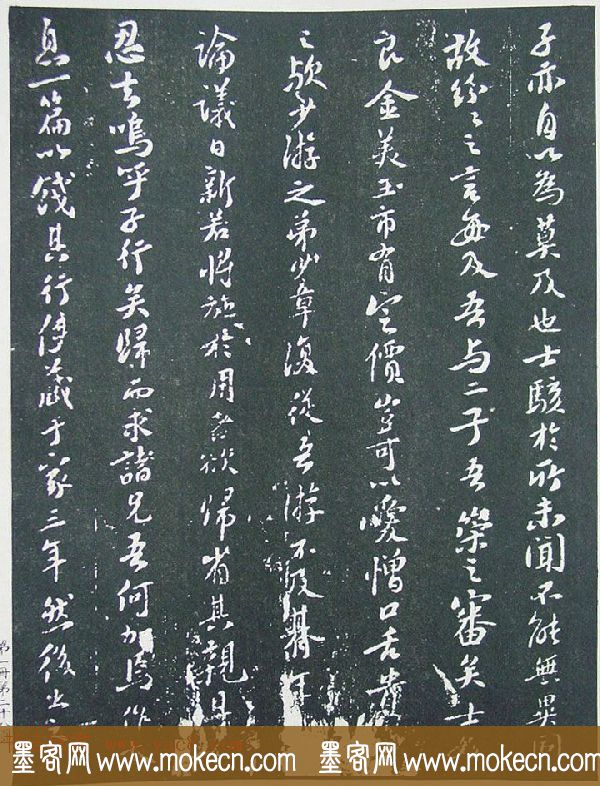 子亦自以為莫及也士駭於所未聞不能無異同
故紛々之言每及吾与二子吾策之審矣士
良金美玉市有定價豈可以愛憎口舌貴
之歟少游之弟少章復從吾游不及朞年
論議日新若將施於用者欲歸省其親且
忍去嗚乎子行矣歸而求諸兄吾何加焉作
息一篇以餞其行使藏于家三年然後出之
第一册第二十
墨客网 www.mokecn.com 墨客网 www.mokecn.com